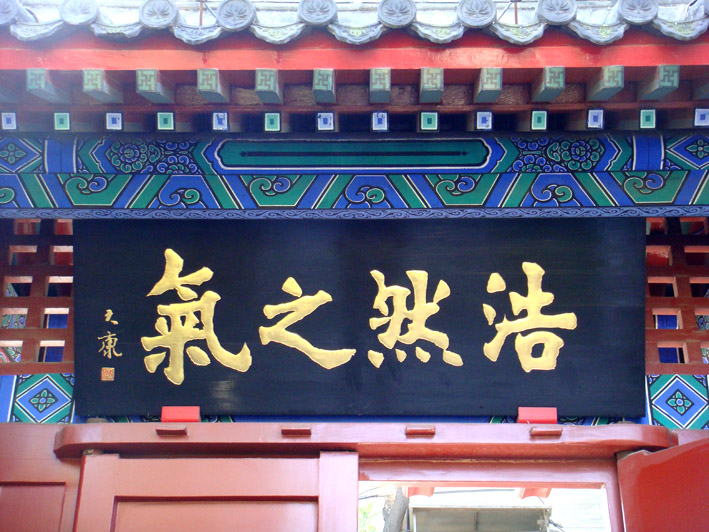 浩然之氣
天康